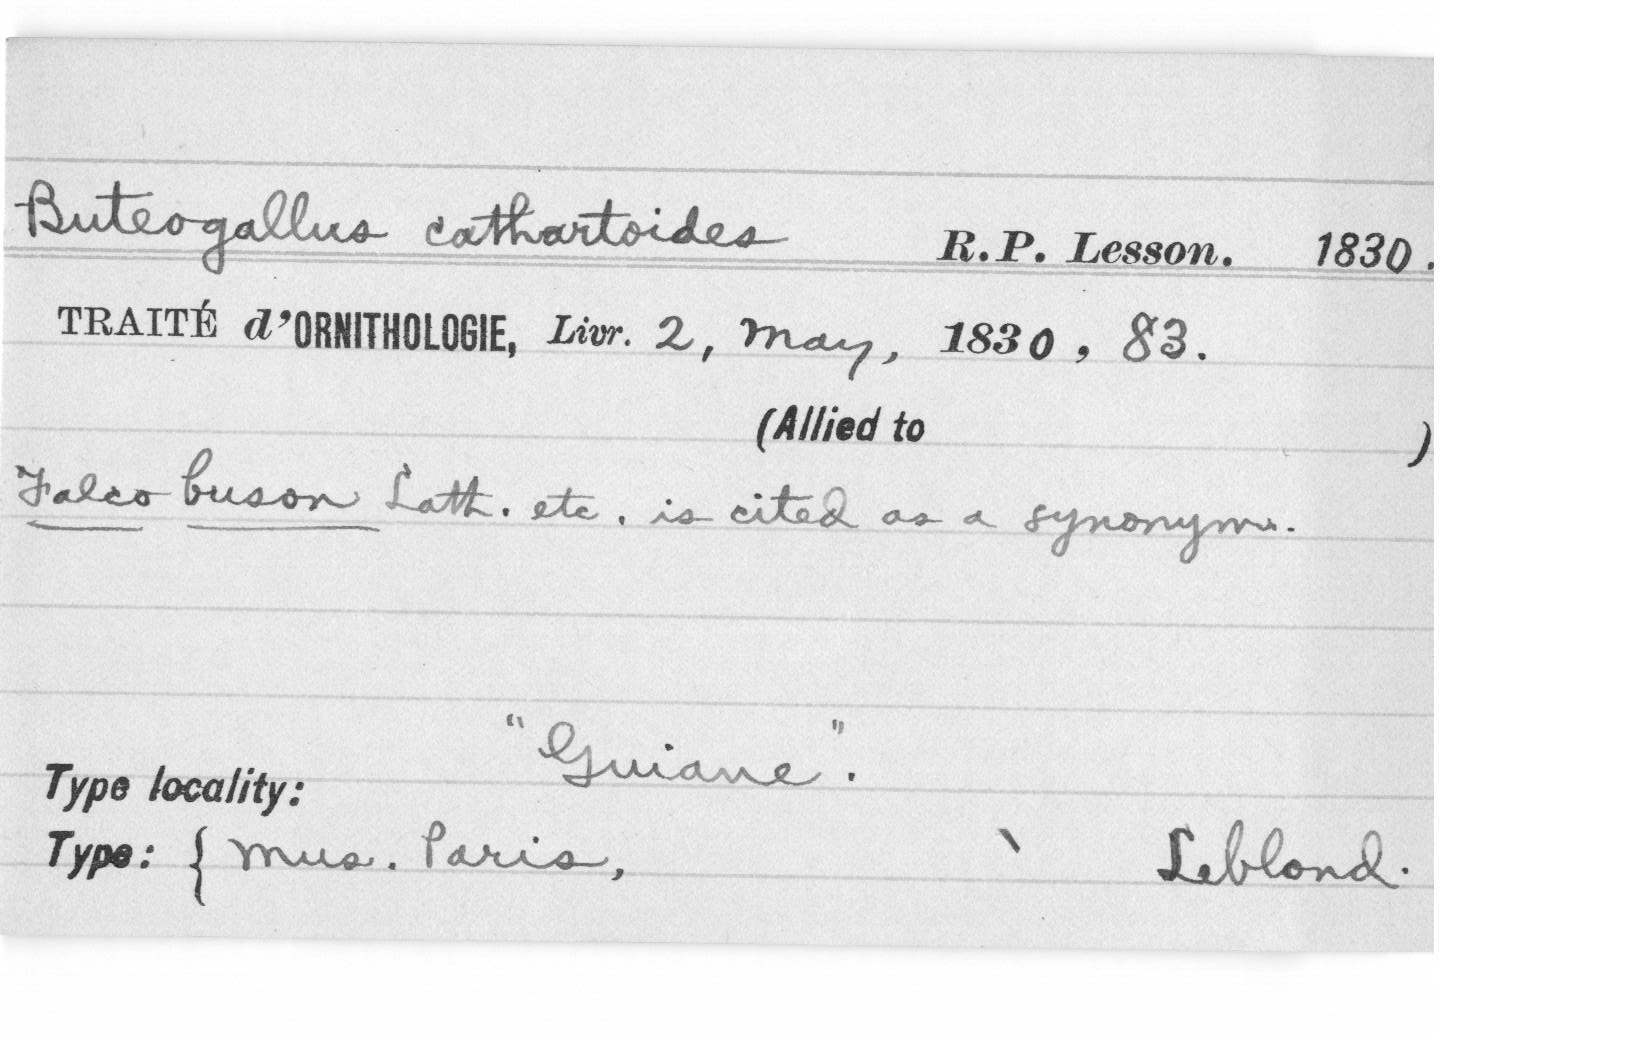 Buteogallus cathartoides R.P. Lesson. 1830.
TRAITÉ d'ORNITHOLOGIE, Livr. 2, May, 1830, 83.
(Allied to )
Falco buson Lath. etc. is cited as a synonym.
"Guiane".
Type locality:
Type: { Mus. Paris, Leblond.